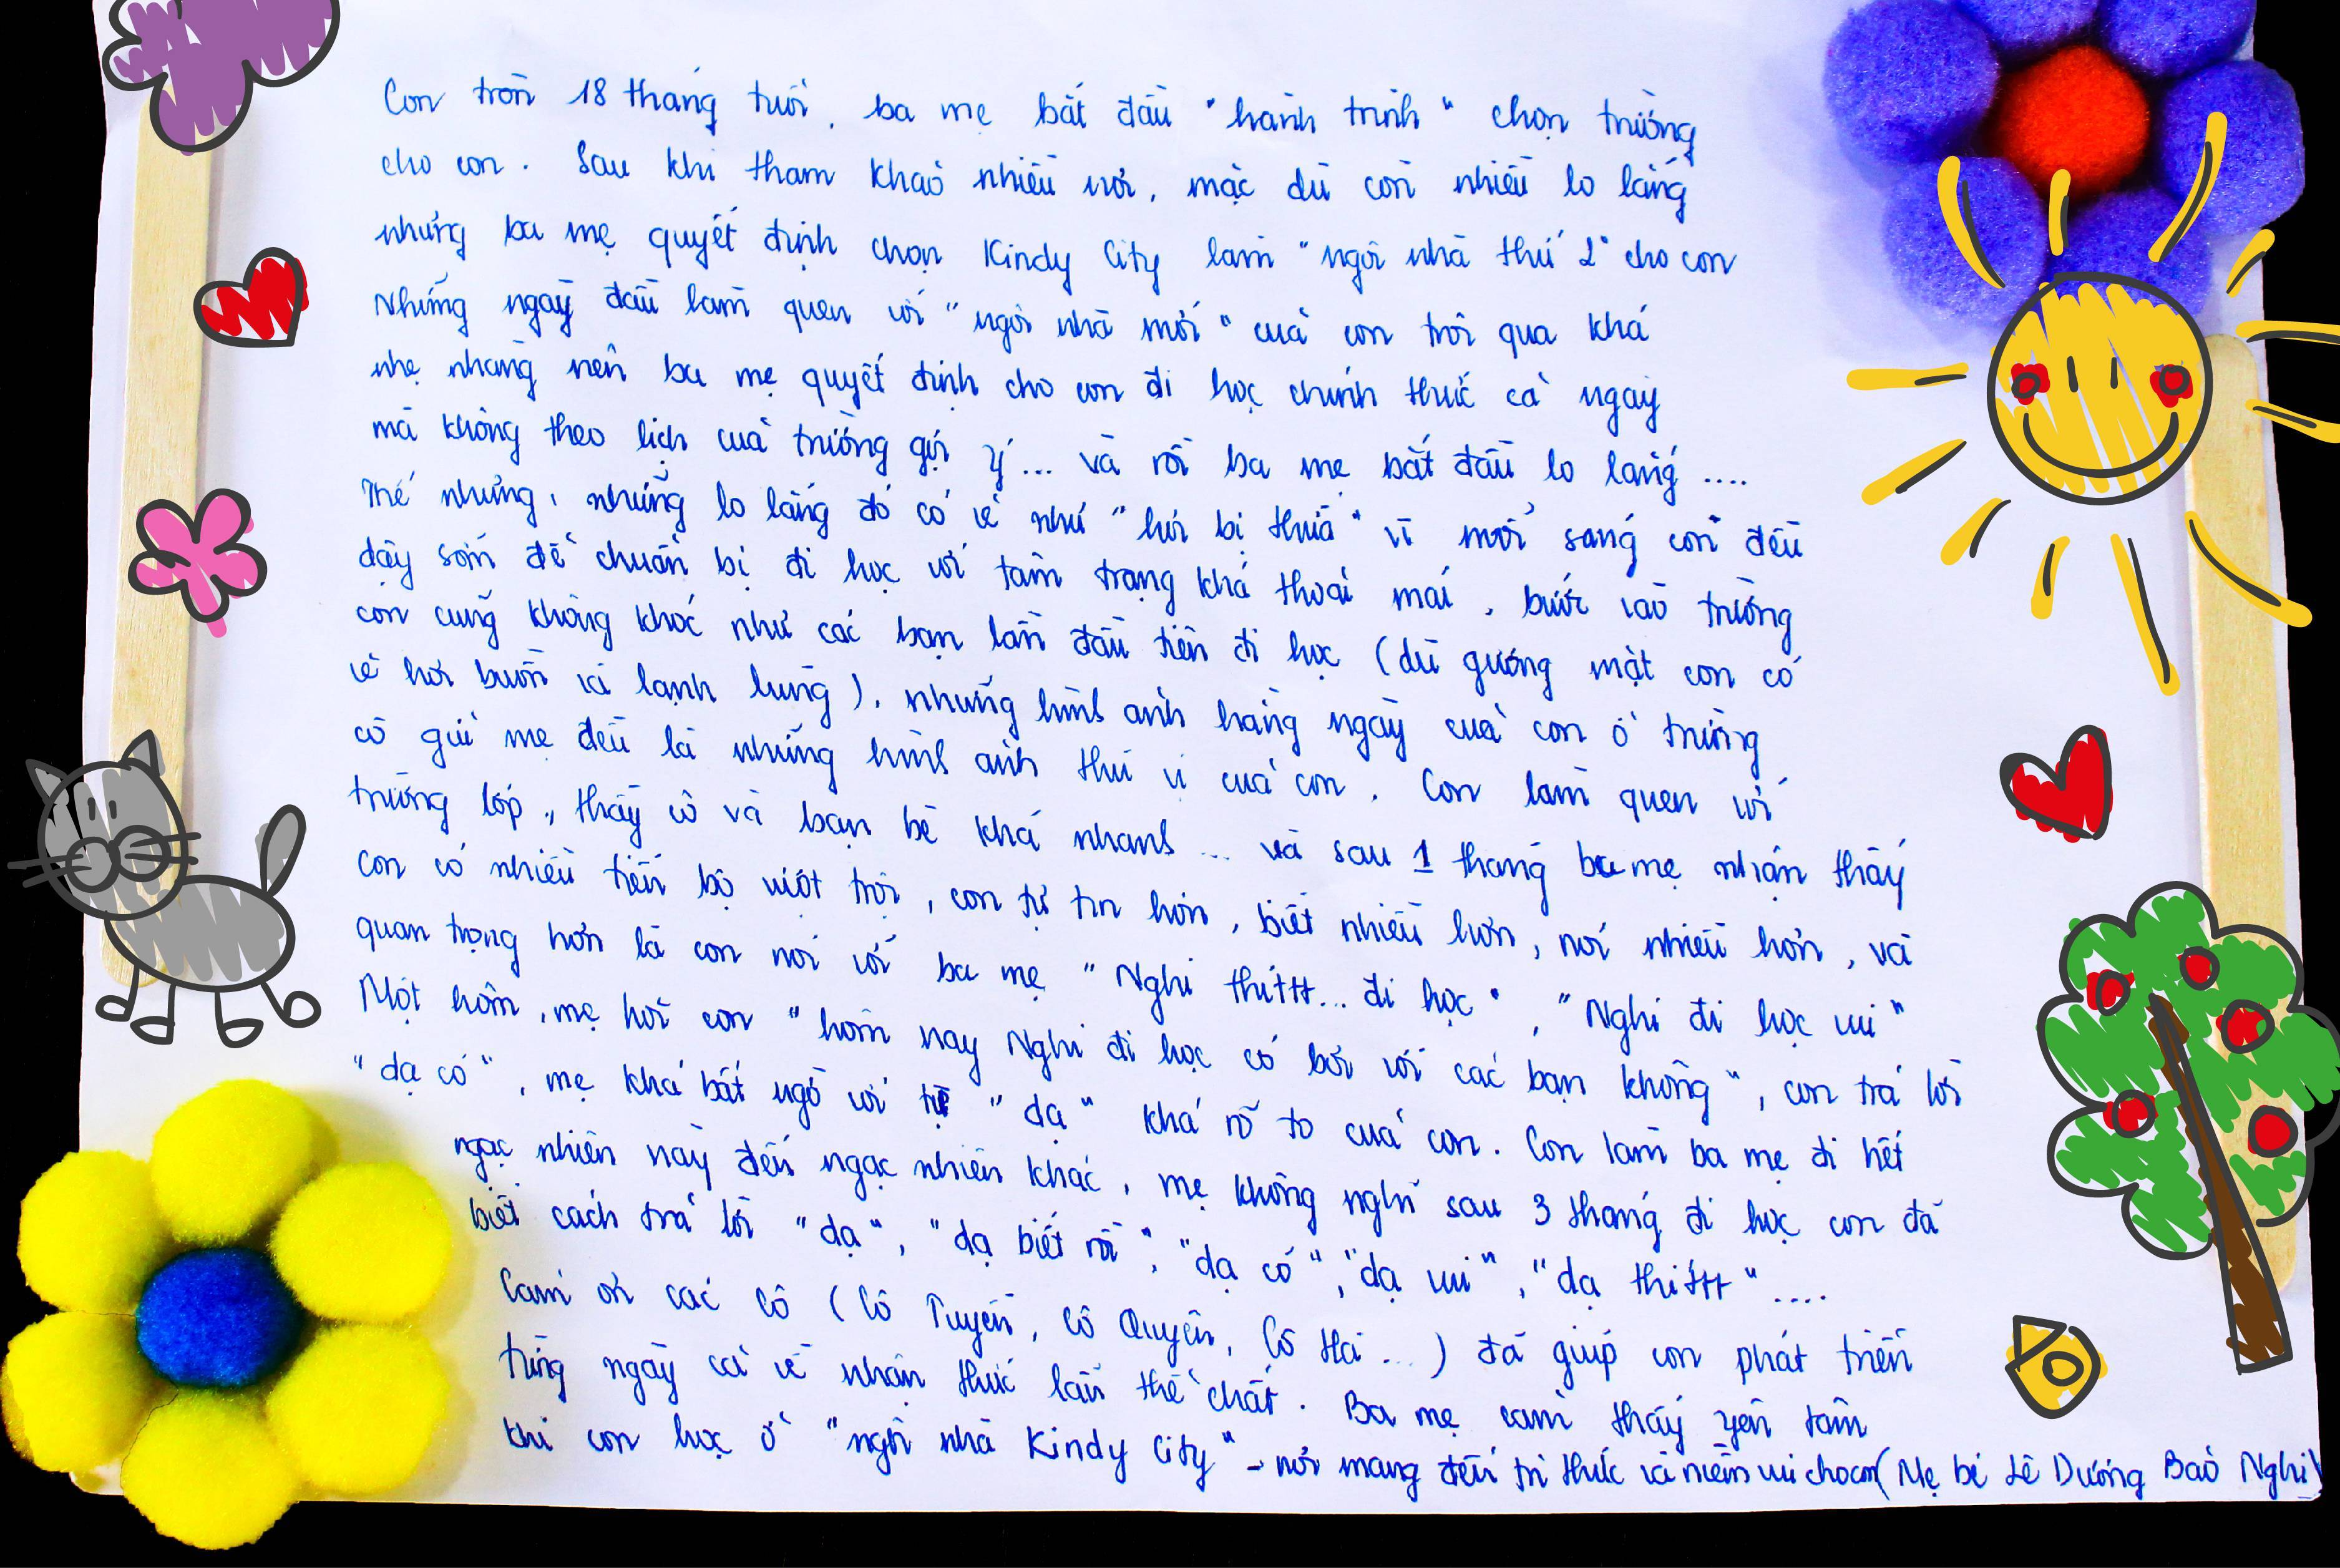 Con tròn 18 tháng tuổi, ba mẹ bắt đầu "hành trình" chọn trường
cho con. Sau khi tham khảo nhiều nơi, mặc dù còn nhiều lo lắng
nhưng ba mẹ quyết định chọn Kindy City làm "ngôi nhà thứ 2" cho con
Những ngày đầu làm quen với "ngôi nhà mới" của con trôi qua khá
nhẹ nhàng nên ba mẹ quyết định cho con đi học chính thức cả ngày
mà không theo lịch của trường gợi ý... và rồi ba mẹ bắt đầu lo lắng....
Thế nhưng, những lo lắng đó có vẻ như "hơi bị thừa" vì mỗi sáng con đều
dậy sớm để chuẩn bị đi học với tâm trạng khá thoải mái, bước vào trường
con cũng không khóc như các bạn lần đầu tiên đi học (dù gương mặt con có
vẻ hơi buồn và lạnh lùng), những hình ảnh hằng ngày của con ở trường
cô gửi mẹ đều là những hình ảnh thú vị của con. Con làm quen với
trường lớp, thầy cô và bạn bè khá nhanh ... và sau 1 tháng ba mẹ nhận thấy
con có nhiều tiến bộ vượt trội, con tự tin hơn, biết nhiều hơn, nói nhiều hơn, và
quan trọng hơn là con nói với ba mẹ "Nghi thítttt... đi học", "Nghi đi học vui"
Một hôm, mẹ hỏi con "hôm nay Nghi đi học có bơi với các bạn không", con trả lời
"dạ có", mẹ khá bất ngờ với từ "dạ" khá rõ to của con. Con làm ba mẹ đi hết
ngạc nhiên này đến ngạc nhiên khác, mẹ không nghĩ sau 3 tháng đi học con đã
biết cách trả lời "dạ", "dạ biết rồi", "dạ có", "dạ vui", "dạ thítttt"....
Cảm ơn các cô (Cô Tuyền, Cô Quyên, Cô Hà ...) đã giúp con phát triển
từng ngày cả về nhận thức lẫn thể chất. Ba mẹ cảm thấy yên tâm
khi con học ở "ngôi nhà Kindy City" - nơi mang đến tri thức và niềm vui cho con (Mẹ bé Lê Dương Bảo Nghi)